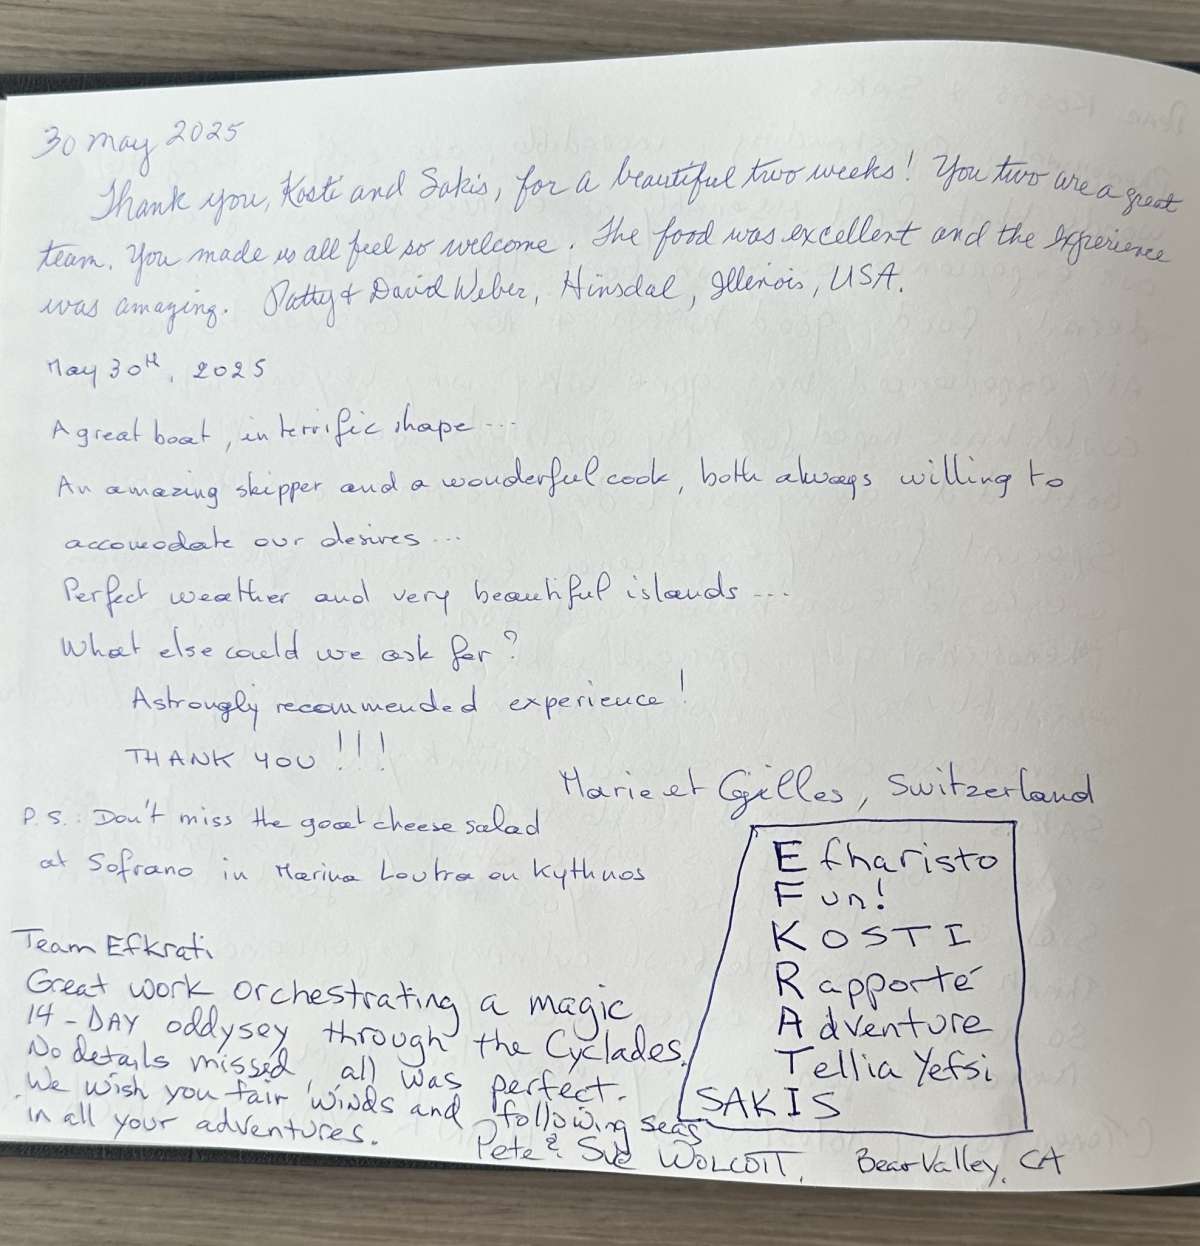 30 May 2025
Thank you, Kosti and Sakis, for a beautiful two weeks! You two are a great
team. You made us all feel so welcome. The food was excellent and the experience
was amazing. Patty & David Weber, Hinsdal, Illinois, USA.
May 30th, 2025
A great boat, in terrific shape...
An amazing skipper and a wonderful cook, both always willing to
accomodate our desires...
Perfect weather and very beautiful islands...
What else could we ask for?
A strongly recommended experience!
THANK YOU!!!
Marie et Gilles, Switzerland
P.S.: Don't miss the goat cheese salad
at Sofrano in Marina Loutra on Kythnos
Efharisto
Fun!
KOSTI
Rapporté
Adventure
Tellia Yefsi
SAKIS
Team Efkrati
Great work orchestrating a magic
14-DAY oddysey through the Cyclades.
No details missed, all was perfect.
We wish you fair winds and following seas
in all your adventures.
Pete & Sue WOLCOTT, Bear Valley, CA